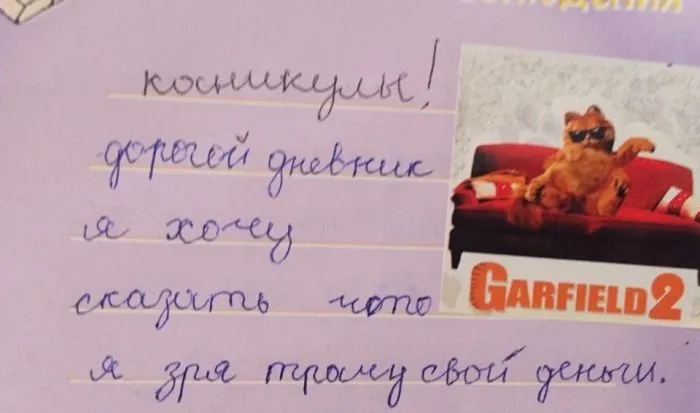 каникулы!
дорогой дневник
я хочу
сказать что
я зря трачу свой деньги.
GARFIELD 2